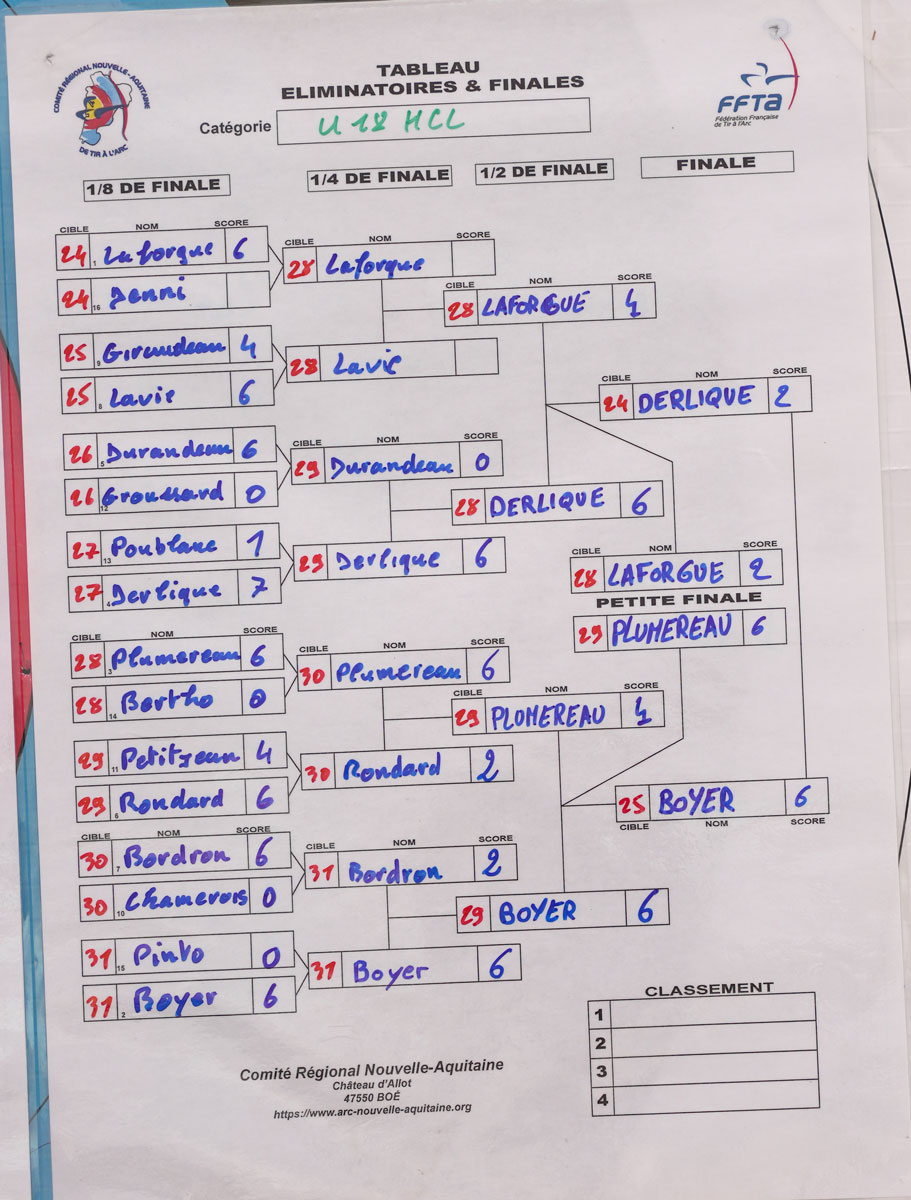 COMITÉ RÉGIONAL NOUVELLE-AQUITAINE
DE TIR À L'ARC
TABLEAU
ELIMINATOIRES & FINALES
Catégorie U18 HCL
FFTA
Fédération Française
de Tir à l'Arc
1/8 DE FINALE
1/4 DE FINALE
1/2 DE FINALE
FINALE
CIBLE NOM SCORE
24 1 Laforgue 6
24 16 Jenni
25 9 Giraudeau 4
25 8 Lavie 6
CIBLE NOM SCORE
26 5 Durandeau 6
26 12 Groussard 0
27 13 Poublanc 1
27 4 Derlique 7
CIBLE NOM SCORE
28 3 Plumereau 6
28 14 Bertho 0
29 11 Petitjean 4
29 6 Rondard 6
CIBLE NOM SCORE
30 7 Bordron 6
30 10 Chamerois 0
31 15 Pinto 0
31 2 Boyer 6
CIBLE NOM
28 Laforgue
28 Lavie
CIBLE NOM SCORE
29 Durandeau 0
29 Derlique 6
CIBLE NOM SCORE
30 Plumereau 6
30 Rondard 2
CIBLE NOM SCORE
31 Bordron 2
31 Boyer 6
CIBLE NOM SCORE
28 LAFORGUE 4
28 DERLIQUE 6
CIBLE NOM SCORE
29 PLOMEREAU 4
29 BOYER 6
CIBLE NOM SCORE
24 DERLIQUE 2
CIBLE NOM SCORE
28 LAFORGUE 2
PETITE FINALE
29 PLUMEREAU 6
25 BOYER 6
CIBLE NOM SCORE
CLASSEMENT
1
2
3
4
Comité Régional Nouvelle-Aquitaine
Château d'Allot
47550 BOÉ
https://www.arc-nouvelle-aquitaine.org